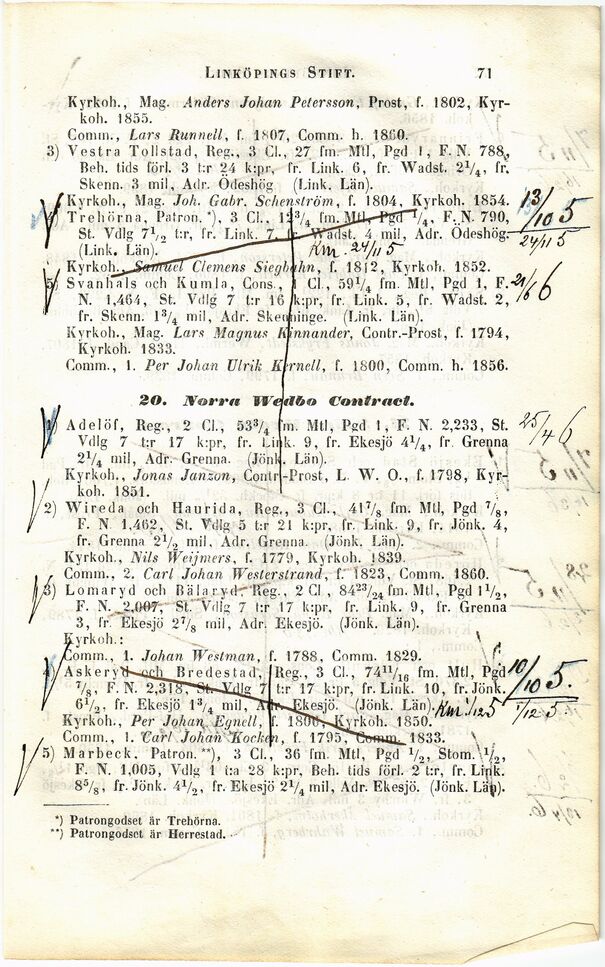 LINKÖPINGS STIFT. 71
Kyrkoh., Mag. Anders Johan Petersson, Prost, f. 1802, Kyr-
koh. 1855.
Comm., Lars Runnell, f. 1807, Comm. h. 1860.
3) Vestra Tollstad, Reg., 3 Cl., 27 fm. Mtl, Pgd 1, F. N. 788,
Beh. tids förl. 3 t:r 24 k:pr, fr. Link. 6, fr. Wadst. 2¹/₄, fr.
Skenn. 3 mil, Adr. Ödeshög (Link. Län).
Kyrkoh., Mag. Joh. Gabr. Schenström, f. 1804, Kyrkoh. 1854.
13/10 5
4) Trehörna, Patron. *), 3 Cl., 12³/₄ fm. Mtl, Pgd ¹/₄, F. N. 790,
St. Vdlg 7¹/₂ t:r, fr. Link. 7, fr. Wadst. 4 mil, Adr. Ödeshög.
24/11 5
(Link. Län). Km. 24/11 5
Kyrkoh., Samuel Clemens Siegbahn, f. 1812, Kyrkoh. 1852.
5) Svanhals och Kumla, Cons., 1 Cl., 59¹/₄ fm. Mtl, Pgd 1, F.
21/6 6
N. 1,464, St. Vdlg 7 t:r 16 k:pr, fr. Link. 5, fr. Wadst. 2,
fr. Skenn. 1³/₄ mil, Adr. Skenninge. (Link. Län).
Kyrkoh., Mag. Lars Magnus Kinnander, Contr.-Prost, f. 1794,
Kyrkoh. 1833.
Comm., 1. Per Johan Ulrik Kernell, f. 1800, Comm. h. 1856.
20. Norra Wedbo Contract.
1) Adelöf, Reg., 2 Cl., 53³/₄ fm. Mtl, Pgd 1, F. N. 2,233, St.
25/4 6
Vdlg 7 t:r 17 k:pr, fr. Link. 9, fr. Ekesjö 4¹/₄, fr. Grenna
2¹/₄ mil, Adr. Grenna. (Jönk. Län).
Kyrkoh., Jonas Janzon, Contr.-Prost, L. W. O., f. 1798, Kyr-
koh. 1851.
2) Wireda och Haurida, Reg., 3 Cl., 41⁷/₈ fm. Mtl, Pgd ⁷/₈,
F. N. 1,462, St. Vdlg 5 t:r 21 k:pr, fr. Link. 9, fr. Jönk. 4,
fr. Grenna 2¹/₂ mil, Adr. Grenna. (Jönk. Län).
Kyrkoh., Nils Weijmers, f. 1779, Kyrkoh. 1839.
Comm., 2. Carl Johan Westerstrand, f. 1823, Comm. 1860.
3) Lomaryd och Bälaryd, Reg., 2 Cl., 84²³/₂₄ fm. Mtl, Pgd 1¹/₂,
F. N. 2,007, St. Vdlg 7 t:r 17 k:pr, fr. Link. 9, fr. Grenna
3, fr. Ekesjö 2⁷/₈ mil, Adr. Ekesjö. (Jönk. Län).
Kyrkoh.:
Comm., 1. Johan Westman, f. 1788, Comm. 1829.
4) Askeryd och Bredestad, Reg., 3 Cl., 74¹¹/₁₆ fm. Mtl, Pgd
10/10 5.
⁷/₈, F. N. 2,318, St. Vdlg 7 t:r 17 k:pr, fr. Link. 10, fr. Jönk.
6¹/₂, fr. Ekesjö 1³/₄ mil, Adr. Ekesjö. (Jönk. Län). Km. 1/12 5 1/12 5
Kyrkoh., Per Johan Egnell, f. 1806, Kyrkoh. 1850.
Comm., 1. Carl Johan Kocken, f. 1795, Comm. 1833.
5) Marbeck, Patron. **), 3 Cl., 36 fm. Mtl, Pgd ¹/₂, Stom. ¹/₂,
F. N. 1,005, Vdlg 1 t:a 28 k:pr, Beh. tids förl. 2 t:r, fr. Link.
8⁵/₈, fr. Jönk. 4¹/₂, fr. Ekesjö 2¹/₄ mil, Adr. Ekesjö. (Jönk. Län).
*) Patrongodset är Trehörna.
**) Patrongodset är Herrestad.